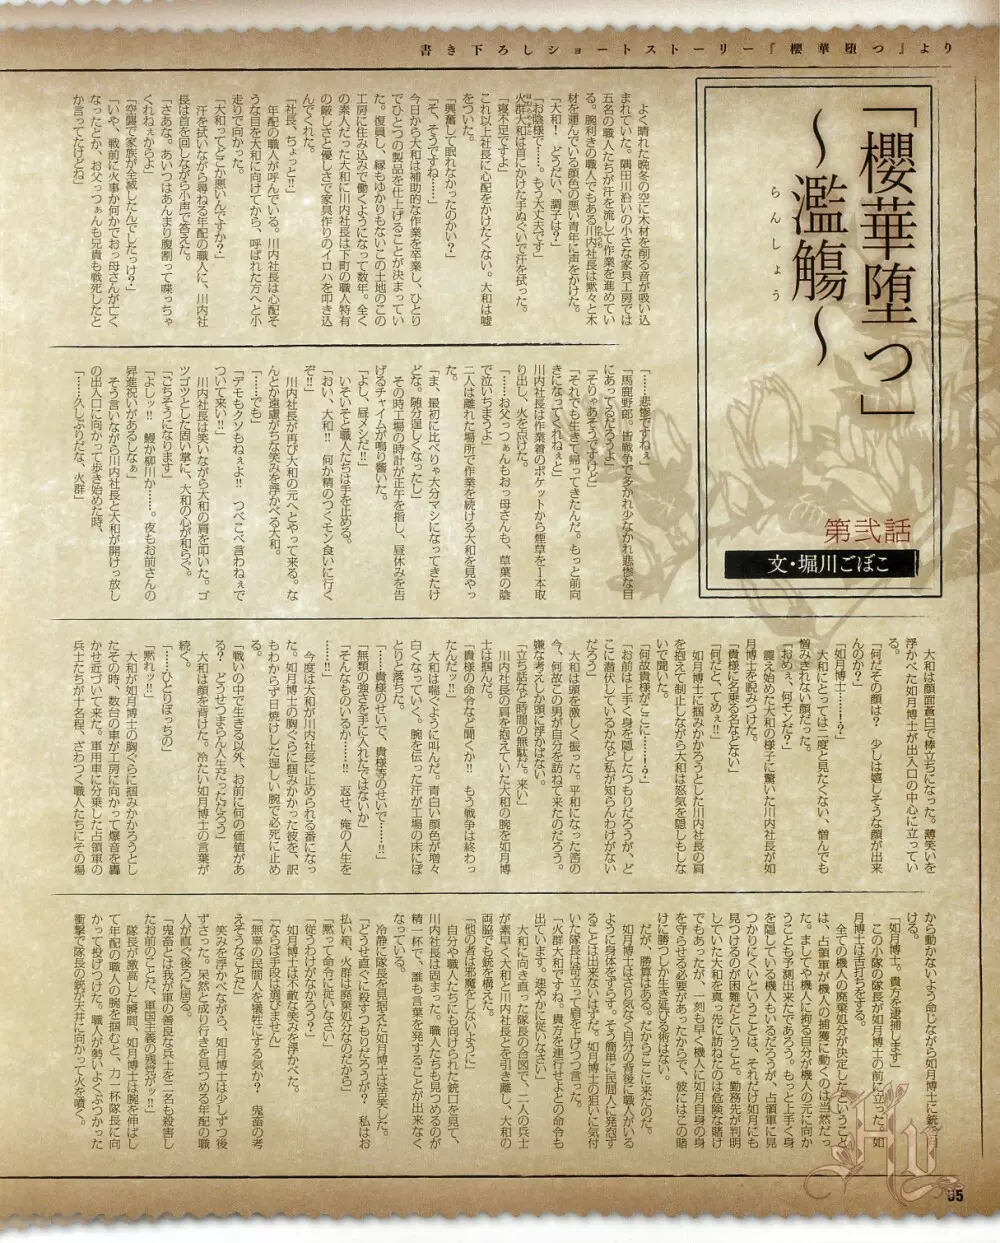 書き下ろしショートストーリー『櫻華堕つ』より
「櫻華堕つ」
～濫觴～
らんしょう
第弐話
文・堀川ごぼこ
よく晴れた晩冬の空に木材を削る音が吸い込
まれていた。隅田川沿いの小さな家具工房では
五名の職人たちが汗を流して作業を進めてい
る。腕利きの職人でもある川内社長は黙々と木
材を運んでいる顔色の悪い青年に声をかけた。
「大和！　どうだい、調子は？」
「お陰様で……。もう大丈夫です」
火群大和は首にかけた手ぬぐいで汗を拭った。
「寝不足ですよ」
これ以上社長に心配をかけたくない。大和は嘘
をついた。
「興奮して眠れなかったのかい？」
「そ、そうですね……」
今日から大和は補助的な作業を卒業し、ひとり
でひとつの製品を仕上げることが決まってい
た。復員し、縁もゆかりもないこの土地のこの
工房に住み込みで働くようになって数年。全く
の素人だった大和に川内社長は下町の職人特有
の厳しさと優しさで家具作りのイロハを叩き込
んでくれた。
「社長、ちょっと!!」
年配の職人が呼んでいる。川内社長は心配そ
うな目を大和に向けてから、呼ばれた方へと小
走りで向かった。
「大和ってどこか悪いんですか？」
汗を拭いながら尋ねる年配の職人に、川内社
長は首を回しながら小声で答えた。
「さあな。あいつはあんまり腹割って喋っちゃ
くれねぇからよ」
「空襲で家族が全滅したんでしたっけ？」
「いや、戦前に火事か何かでおっ母さんが亡く
なったとか、お父っつぁんも兄貴も戦死したと
か言ってたけどね」
「……悲惨ですねぇ」
「馬鹿野郎。皆戦争で多かれ少なかれ悲惨な目
にあってるだろうよ」
「そりゃあそうですけど」
「それでも生きて帰ってきたんだ。もっと前向
きになってくれねぇと」
川内社長は作業着のポケットから煙草を1本取
り出し、火を点けた。
「……お父っつぁんもおっ母さんも、草葉の陰
で泣いちまうよ」
二人は離れた場所で作業を続ける大和を見やっ
た。
「ま、最初に比べりゃ大分マシになってきたけ
どな。随分逞しくなったし」
その時工場の時計が正午を指し、昼休みを告
げるチャイムが鳴り響いた。
「よし、昼メシだ!!」
いそいそと職人たちは手を止める。
「おい、大和!!　何か精のつくモン食いに行く
ぞ!!」
川内社長が再び大和の元へとやって来る。な
んとか遠慮がちな笑みを浮かべる大和。
「……でも」
「デモもクソもねぇよ!!　つべこべ言わねぇで
ついて来い!!」
川内社長は笑いながら大和の肩を叩いた。ゴ
ツゴツとした固い掌に、大和の心が和らぐ。
「ごちそうになります」
「よしッ!!　鰻か柳川か……。夜もお前さんの
昇進祝いがあるしなぁ」
そう言いながら川内社長と大和が開けっ放し
の出入口に向かって歩き始めた時、
「……久しぶりだな、火群」
大和は顔面蒼白で棒立ちになった。薄笑いを
浮かべた如月博士が出入口の中心に立ってい
「何だその顔は？　少しは嬉しそうな顔が出来
んのか？」
「如月博士……!?」
大和にとっては二度と見たくない、憎んでも
憎みきれない顔だった。
「おめぇ、何モンだ？」
震え始めた大和の様子に驚いた川内社長が如
月博士を睨みつけた。
「貴様に名乗る名などない」
「何だと、てめぇ!!」
如月博士に掴みかかろうとした川内社長の肩
を抱えて制止しながら大和は怒気を隠しもしな
いで聞いた。
「何故貴様がここに……!?」
「お前は上手く身を隠したつもりだろうが、ど
こに潜伏しているかなど私が知らんわけがない
だろう」
大和は頭を激しく振った。平和になった筈の
今、何故この男が自分を訪ねて来たのだろう。
嫌な考えしか頭に浮かばない。
「立ち話など時間の無駄だ。来い」
川内社長の肩を抱えていた大和の腕を如月博
士は掴んだ。
「貴様の命令など聞くか!!　もう戦争は終わっ
たんだッ!!」
大和は喘ぐように叫んだ。青白い顔色が増々
白くなっていく。腕を伝った汗が工場の床にぽ
とりと落ちた。
「貴様のせいで、貴様等のせいで……!!」
「無類の強さを手に入れたではないか」
「そんなものいるか……!!　返せ、俺の人生を
……!!」
今度は大和が川内社長に止められる番になっ
た。如月博士の胸ぐらに掴みかかった彼を、訳
もわからず日焼けした逞しい腕で必死に止め
る。
「戦いの中で生きる以外、お前に何の価値があ
る？　どうせつまらん人生だっただろう」
大和は顔を背けた。冷たい如月博士の言葉が
続く。
「……ひとりぼっちの」
「黙れッ!!」
大和が如月博士の胸ぐらに掴みかかろうとし
たその時、数台の車が工房に向かって爆音を轟
かせ近づいて来た。軍用車に分乗した占領軍の
兵士たちが十名程、ざわつく職人たちにその場
から動かないよう命じながら如月博士に銃を向
ける。
「如月博士。貴方を逮捕します」
この小隊の隊長が如月博士の前に立った。如
月博士は舌打ちをする。
全ての機人の廃棄処分が決定したということ
は、占領軍が機人の捕獲に動くのは当然だっ
た。ましてや機人に拘る自分が機人の元に向か
うことも予測出来たであろう。もっと上手く身
を隠している機人もいるだろうが、占領軍に見
つかりにくいということは、それだけ如月にも
見つけるのが困難だということ。勤務先が判明
していた大和を真っ先に訪ねたのは危険な賭け
でもあったが、一刻も早く機人に如月自身の身
を守らせる必要があったからで、彼にはこの賭
けに勝つしか生き延びる術はない。
だが、勝算はある。だからここに来たのだ。
如月博士はさり気なく自分の背後に職人がいる
ように身体をずらす。そう簡単に民間人に発砲す
ることは出来ないはずだ。如月博士の狙いに気付
いた隊長は苛立って眉を上げつつ言った。
「火群大和ですね。貴方を連行せよとの命令も
出ています。速やかに従いなさい」
大和に向き直った隊長の合図で、二人の兵士
が素早く大和と川内社長とを引き離し、大和の
両脇でも銃を構えた。
「他の者は邪魔をしないように」
自分や職人たちにも向けられた銃口を見て、
川内社長は固まった。職人たちも見つめるのが
精一杯で、誰も言葉を発することが出来なく
なっている。
冷静に隊長を見据えた如月博士は苦笑した。
「どうせ直ぐに殺すつもりだろうが？　私はお
払い箱、火群は廃棄処分なのだから」
「黙って命令に従いなさい」
「従うわけがなかろう？」
如月博士は不敵な笑みを浮かべた。
「ならば手段は選びません」
「無辜の民間人を犠牲にする気か？　鬼畜の考
えそうなことだ」
笑みを浮かべながら、如月博士は少しずつ後
ずさった。呆然と成り行きを見つめる年配の職
人が直ぐ後ろに居る。
「鬼畜とは我が軍の善良な兵士を二名も殺害し
たお前のことだ、軍国主義の残党がッ!!」
隊長が激高した瞬間、如月博士は腕を伸ばし
て年配の職人の腕を掴むと、力一杯隊長に向
かって投げつけた。職人が勢いよくぶつかった
衝撃で隊長の銃が天井に向かって火を噴く。
95